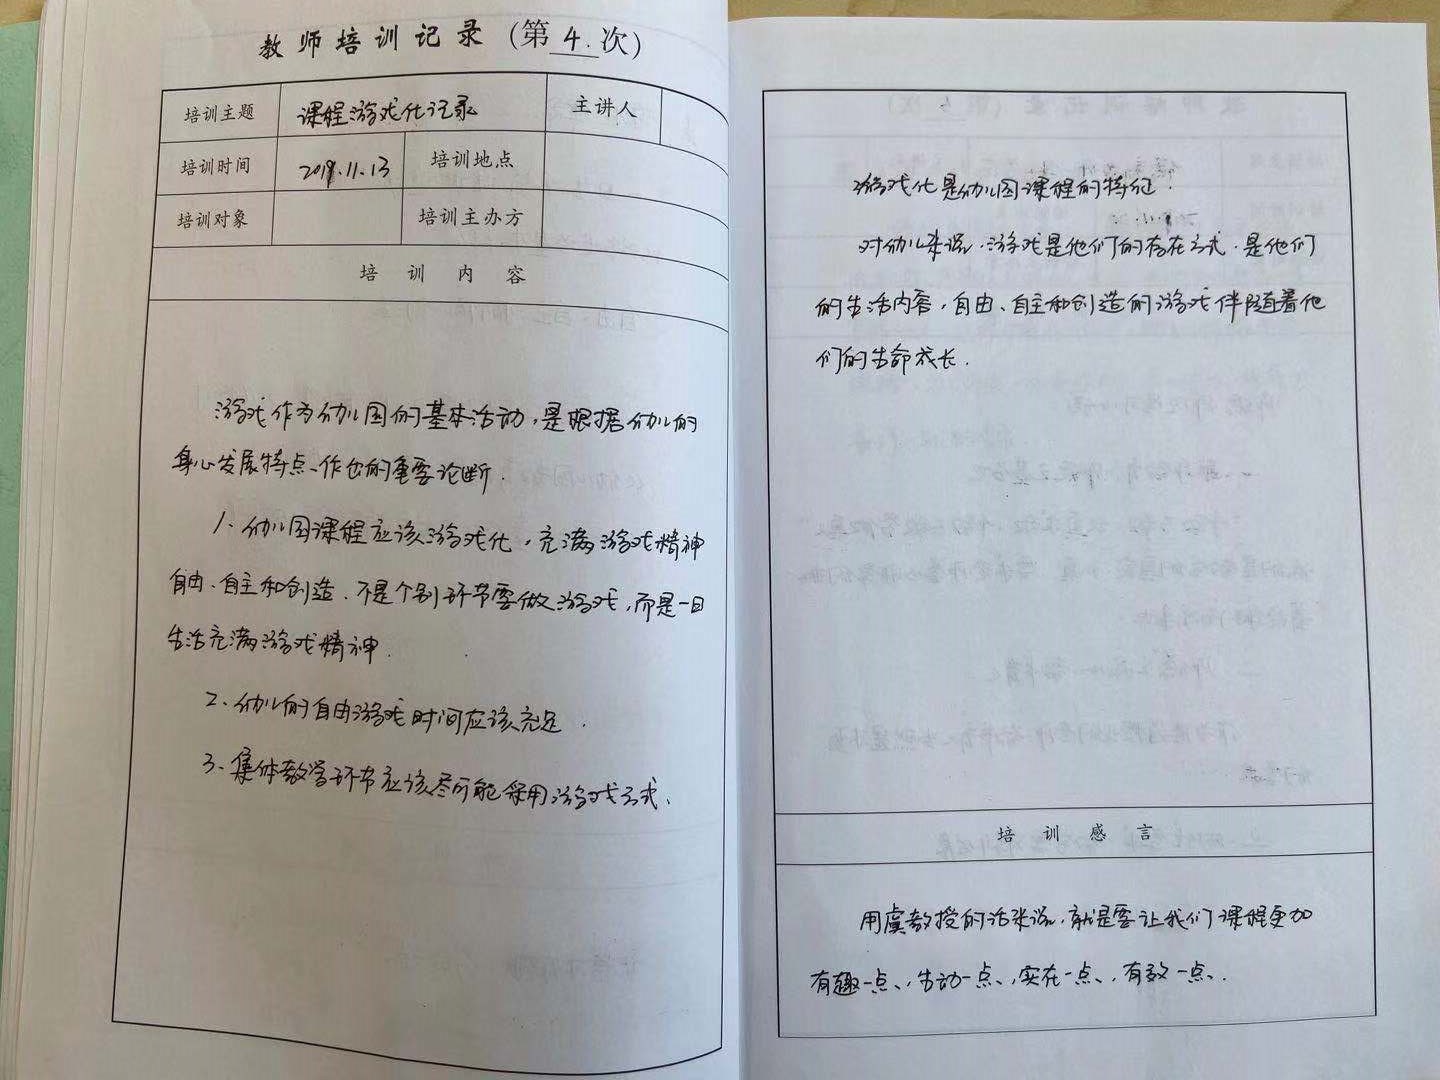 教师培训记录(第4.次)
培训主题 课程游戏化记录 主讲人
培训时间 2019.11.13 培训地点
培训对象 培训主办方
培训内容
游戏作为幼儿园的基本活动,是根据幼儿的
身心发展特点、作出的重要论断.
1、幼儿园课程应该游戏化,充满游戏精神
自由、自主和创造.不是个别环节要做游戏,而是一日
生活充满游戏精神.
2、幼儿的自由游戏时间应该充足.
3、集体教学环节应该尽可能采用游戏方式、
游戏化是幼儿园课程的特征.
对幼儿来说,游戏是他们的存在方式.是他们
的生活内容,自由、自主和创造的游戏伴随着他
们的生命成长.
培训感言
用虞教授的话来说,就是要让我们课程更加
有趣一点、,生动一点、,实在一点、,有效一点、.